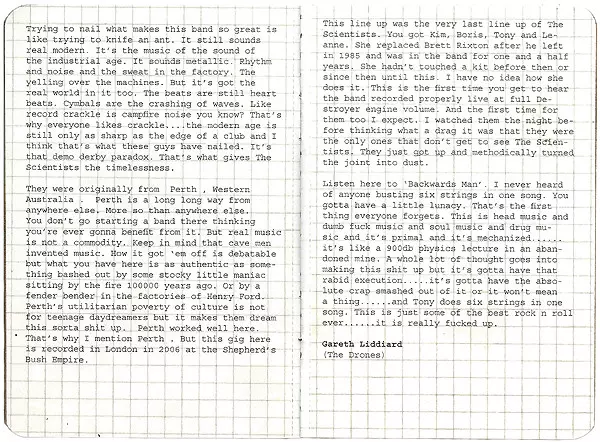 Trying to nail what makes this band so great is
like trying to knife an ant. It still sounds
real modern. It's the music of the sound of
the industrial age. It sounds metallic. Rhythm
and noise and the sweat in the factory. The
yelling over the machines. But it's got the
real world in it too. The beats are still heart
beats. Cymbals are the crashing of waves. Like
record crackle is campfire noise you know? That's
why everyone likes crackle....the modern age is
still only as sharp as the edge of a club and I
think that's what these guys have nailed. It's
that demo derby paradox. That's what gives The
Scientists the timelessness.
They were originally from Perth , Western
Australia . Perth is a long long way from
anywhere else. More so than anywhere else.
You don't go starting a band there thinking
you're ever gonna benefit from it. But real music
is not a commodity. Keep in mind that cave men
invented music. How it got 'em off is debatable
but what you have here is as authentic as some-
thing bashed out by some stocky little maniac
sitting by the fire 100000 years ago. Or by a
fender bender in the factories of Henry Ford.
Perth's utilitarian poverty of culture is not
for teenage daydreamers but it makes them dream
this sorta shit up. Perth worked well here.
That's why I mention Perth . But this gig here
is recorded in London in 2006 at the Shepherd's
Bush Empire.
This line up was the very last line up of The
Scientists. You got Kim, Boris, Tony and Le-
anne. She replaced Brett Rixton after he left
in 1985 and was in the band for one and a half
years. She hadn't touched a kit before then or
since then until this. I have no idea how she
does it. This is the first time you get to hear
the band recorded properly live at full De-
stroyer engine volume. And the first time for
them too I expect. I watched them the night be-
fore thinking what a drag it was that they were
the only ones that don't get to see The Scien-
tists. They just got up and methodically turned
the joint into dust.
Listen here to 'Backwards Man'. I never heard
of anyone busting six strings in one song. You
gotta have a little lunacy. That's the first
thing everyone forgets. This is head music and
dumb fuck music and soul music and drug mu-
sic and it's primal and it's mechanized......
it's like a 900db physics lecture in an aban-
doned mine. A whole lot of thought goes into
making this shit up but it's gotta have that
rabid execution.....it's gotta have the abso-
lute crap smashed out of it or it won't mean
a thing......and Tony does six strings in one
song. This is just some of the best rock n roll
ever......it is really fucked up.
Gareth Liddiard
(The Drones)